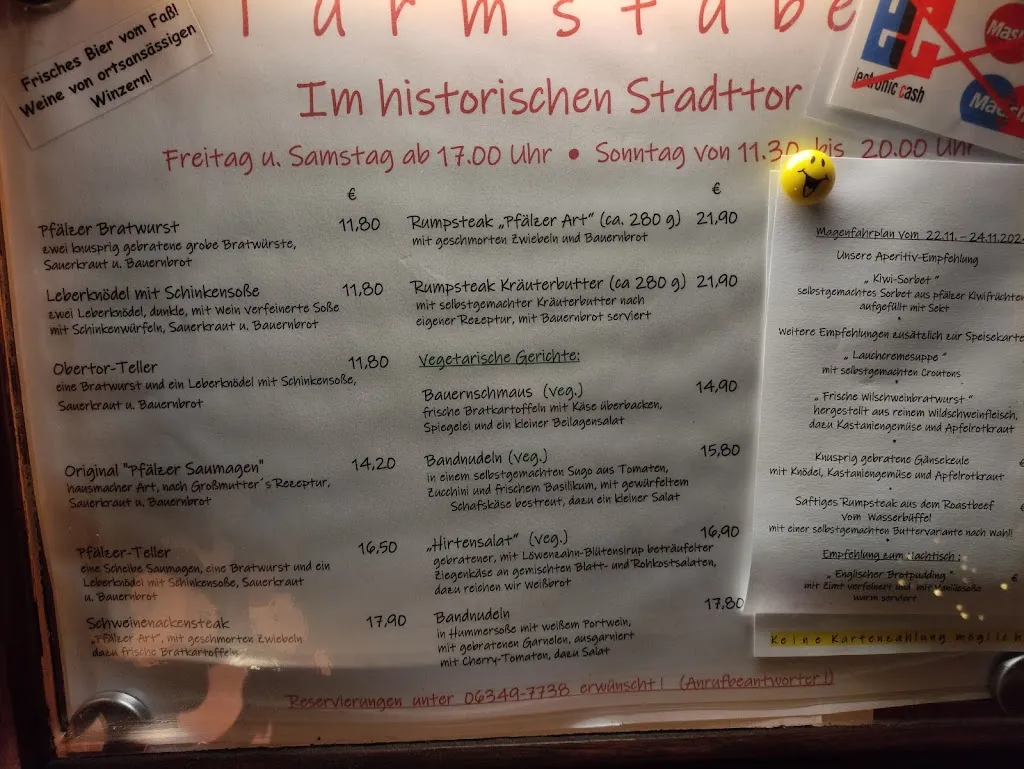 Frisches Bier vom Faß!
Weine von ortsansässigen
Winzern!
Turmstube
Im historischen Stadttor
Freitag u. Samstag ab 17.00 Uhr • Sonntag von 11.30 bis 20.00 Uhr
€
Pfälzer Bratwurst 11,80
zwei knusprig gebratene grobe Bratwürste,
Sauerkraut u. Bauernbrot
Leberknödel mit Schinkensoße 11,80
zwei Leberknödel, dunkle, mit Wein verfeinerte Soße
mit Schinkenwürfeln, Sauerkraut u. Bauernbrot
Obertor-Teller 11,80
eine Bratwurst und ein Leberknödel mit Schinkensoße,
Sauerkraut u. Bauernbrot
Original "Pfälzer Saumagen" 14,20
hausmacher Art, nach Großmutter´s Rezeptur,
Sauerkraut u. Bauernbrot
Pfälzer-Teller 16,50
eine Scheibe Saumagen, eine Bratwurst und ein
Leberknödel mit Schinkensoße, Sauerkraut
u. Bauernbrot
Schweinenackensteak 17,90
„Pfälzer Art", mit geschmorten Zwiebeln
dazu frische Bratkartoffeln
€
Rumpsteak „Pfälzer Art" (ca. 280 g) 21,90
mit geschmorten Zwiebeln und Bauernbrot
Rumpsteak Kräuterbutter (ca 280 g) 21,90
mit selbstgemachter Kräuterbutter nach
eigener Rezeptur, mit Bauernbrot serviert
Vegetarische Gerichte:
Bauernschmaus (veg.) 14,90
frische Bratkartoffeln mit Käse überbacken,
Spiegelei und ein kleiner Beilagensalat
Bandnudeln (veg.) 15,80
in einem selbstgemachten Sugo aus Tomaten,
Zucchini und frischem Basilikum, mit gewürfeltem
Schafskäse bestreut, dazu ein kleiner Salat
„Hirtensalat" (veg.) 16,90
gebratener, mit Löwenzahn-Blütensirup beträufelter
Ziegenkäse an gemischten Blatt- und Rohkostsalaten,
dazu reichen wir Weißbrot
Bandnudeln 17,80
in Hummersoße mit weißem Portwein,
mit gebratenen Garnelen, ausgarniert
mit Cherry-Tomaten, dazu Salat
Reservierungen unter 06349-7738 erwünscht! (Anrufbeantworter!)
ectronic cash
Magenfahrplan vom 22.11. – 24.11.202
Unsere Aperitiv-Empfehlung
„ Kiwi-Sorbet "
selbstgemachtes Sorbet aus pfälzer Kiwifrüchten
aufgefüllt mit Sekt
Weitere Empfehlungen zusätzlich zur Speisekarte
„ Lauchcremesuppe "
mit selbstgemachten Croutons
„ Frische Wilschweinbratwurst "
hergestellt aus reinem Wildschweinfleisch,
dazu Kastaniengemüse und Apfelrotkraut
Knusprig gebratene Gänsekeule
mit Knödel, Kastaniengemüse und Apfelrotkraut
Saftiges Rumpsteak aus dem Roastbeef
vom Wasserbüffel
mit einer selbstgemachten Buttervariante nach Wahl!
Empfehlung zum Nachtisch :
„ Englischer Brotpudding "
mit Zimt verfeinert und mit Vanillesoße
warm serviert
Keine Kartenzahlung möglich